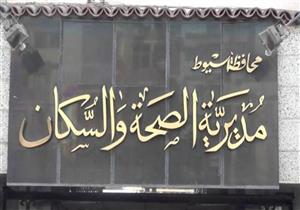 محافظة أسيوط
مُديريّة الصحة والسُّكان